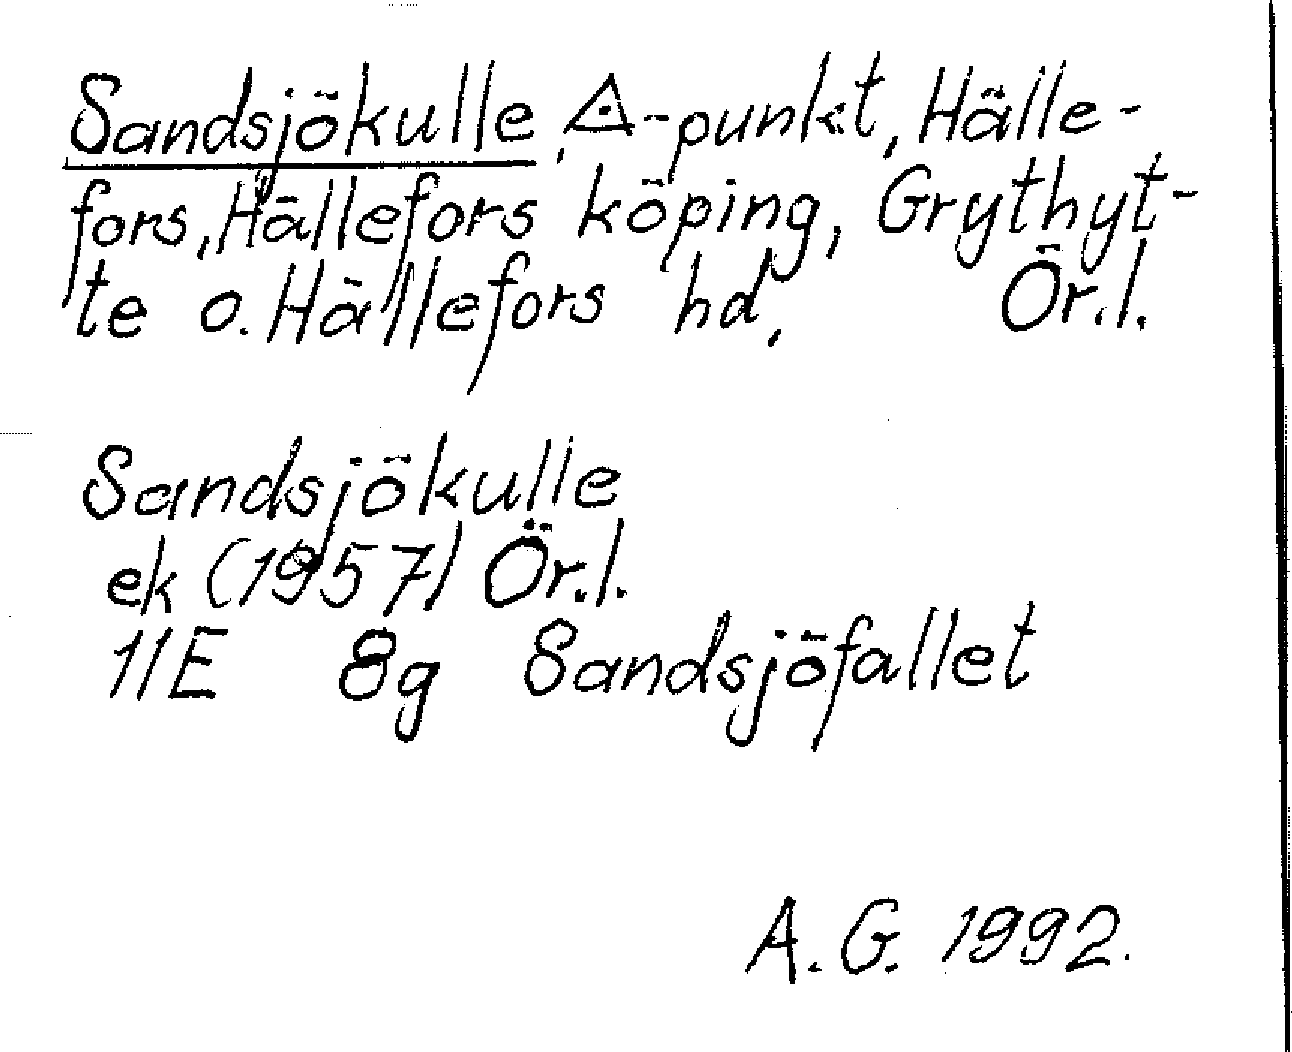 Sandsjökulle, △-punkt, Hälle-
fors, Hällefors köping, Grythyt-
te o. Hällefors hd, Ör.l.
Sandsjökulle
ek (1957) Ör.l.
11E 8g Sandsjöfallet
A.G. 1992.